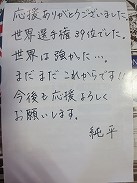 応援ありがとうございました。
世界選手権39位でした。
世界は強かった…。
まだまだこれからです!!
今後も応援よろしく
お願いします。
純平